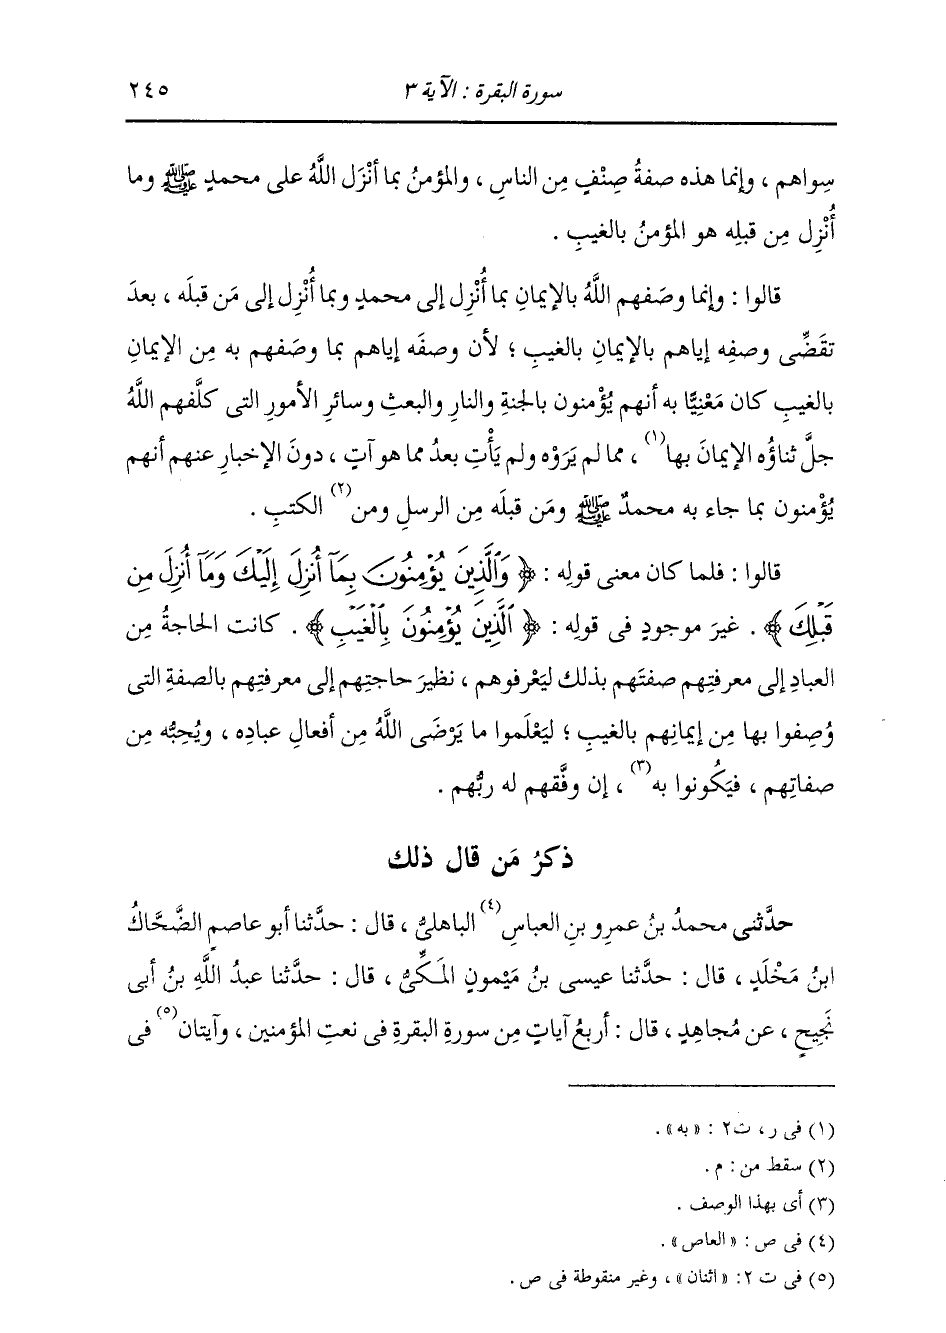 سورة البقرة : الآية ٣ ٢٤٥
سِواهم ، وإنما هذه صفةُ صِنْفٍ مِن الناسِ ، والمؤمنُ بما أنْزَل اللَّهُ على محمدٍ ﷺ وما
أُنْزِل مِن قبلِه هو المؤمنُ بالغيبِ .
قالوا : وإنما وصَفهم اللَّهُ بالإيمانِ بما أُنْزِل إلى محمدٍ وبما أُنْزِل إلى مَن قبلَه ، بعدَ
تقَضِّى وصفِه إياهم بالإيمانِ بالغيبِ ؛ لأن وصفَه إياهم بما وصَفهم به مِن الإيمانِ
بالغيبِ كان مَعْنِيًّا به أنهم يُؤْمنون بالجنةِ والنارِ والبعثِ وسائرِ الأمورِ التى كلَّفهم اللَّهُ
جلَّ ثناؤُه الإيمانَ بها(١) ، مما لم يَرَوْه ولم يَأْتِ بعدُ مما هو آتٍ ، دونَ الإخبارِ عنهم أنهم
يُؤْمنون بما جاء به محمدٌ ﷺ ومَن قبلَه مِن الرسلِ ومن(٢) الكتبِ .
قالوا : فلما كان معنى قولِه : ﴿ وَٱلَّذِينَ يُؤْمِنُونَ بِمَآ أُنزِلَ إِلَيْكَ وَمَآ أُنزِلَ مِن
قَبْلِكَ ﴾ . غيرَ موجودٍ فى قولِه : ﴿ ٱلَّذِينَ يُؤْمِنُونَ بِٱلْغَيْبِ ﴾ . كانت الحاجةُ مِن
العبادِ إلى معرفتِهم صفتَهم بذلك ليَعْرفوهم ، نظيرَ حاجتِهم إلى معرفتِهم بالصفةِ التى
وُصِفوا بها مِن إيمانِهم بالغيبِ ؛ ليَعْلَموا ما يَرْضَى اللَّهُ مِن أفعالِ عبادِه ، ويُحِبُّه مِن
صفاتِهم ، فيَكُونوا به(٣) ، إن وفَّقهم له ربُّهم .
ذكرُ مَن قال ذلك
حدَّثنى محمدُ بنُ عمرِو بنِ العباسِ(٤) الباهلىُّ ، قال : حدَّثنا أبو عاصمٍ الضَّحَّاكُ
ابنُ مَخْلَدٍ ، قال : حدَّثنا عيسى بنُ مَيْمونٍ المَكِّىُّ ، قال : حدَّثنا عبدُ اللَّهِ بنُ أبى
نَجِيحٍ ، عن مُجاهِدٍ ، قال : أربعُ آياتٍ مِن سورةِ البقرةِ فى نعتِ المؤمنين ، وآيتان(٥) فى
(١) فى ر ، ت٢ : « به » .
(٢) سقط من : م .
(٣) أى بهذا الوصف .
(٤) فى ص : « العاص » .
(٥) فى ت ٢: « اثنان » ، وغير منقوطة فى ص .